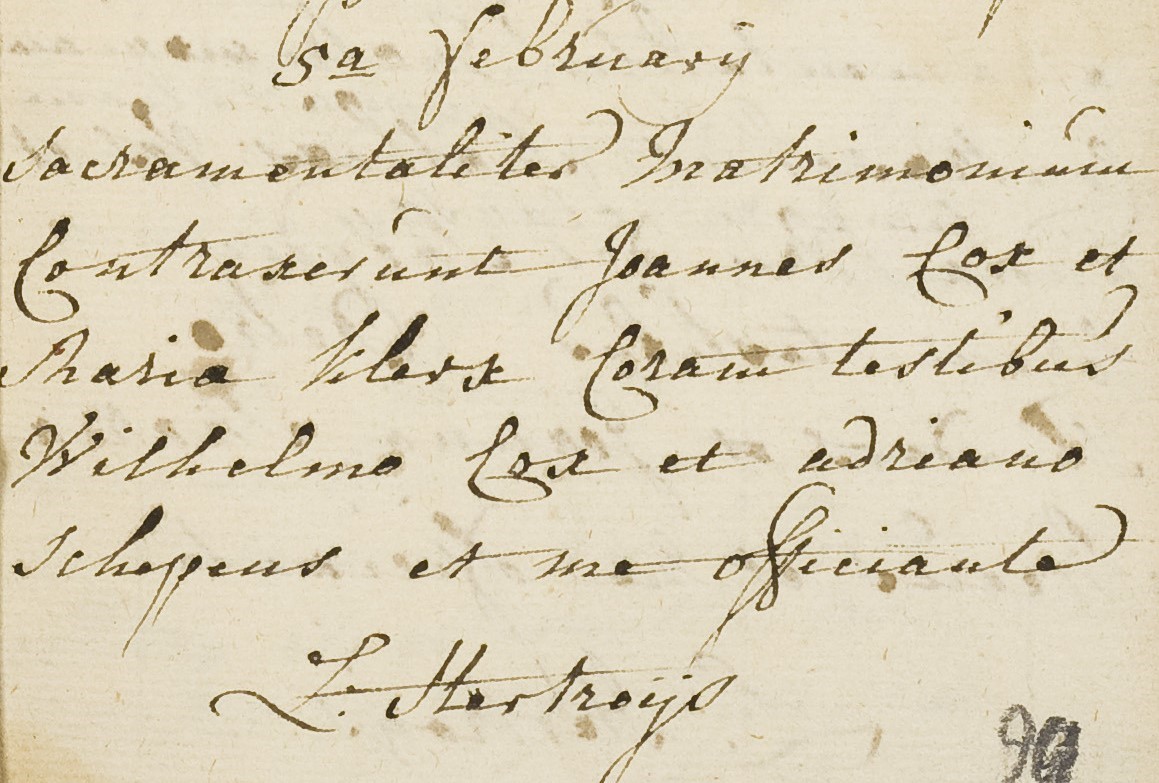 5a february
sacramentaliter Matrimonium
Contraxerunt Joannes Cox et
Maria klerx Coram testibus
Wilhelmo Cox et adriano
schepens et me officiante
L. Hertroijs